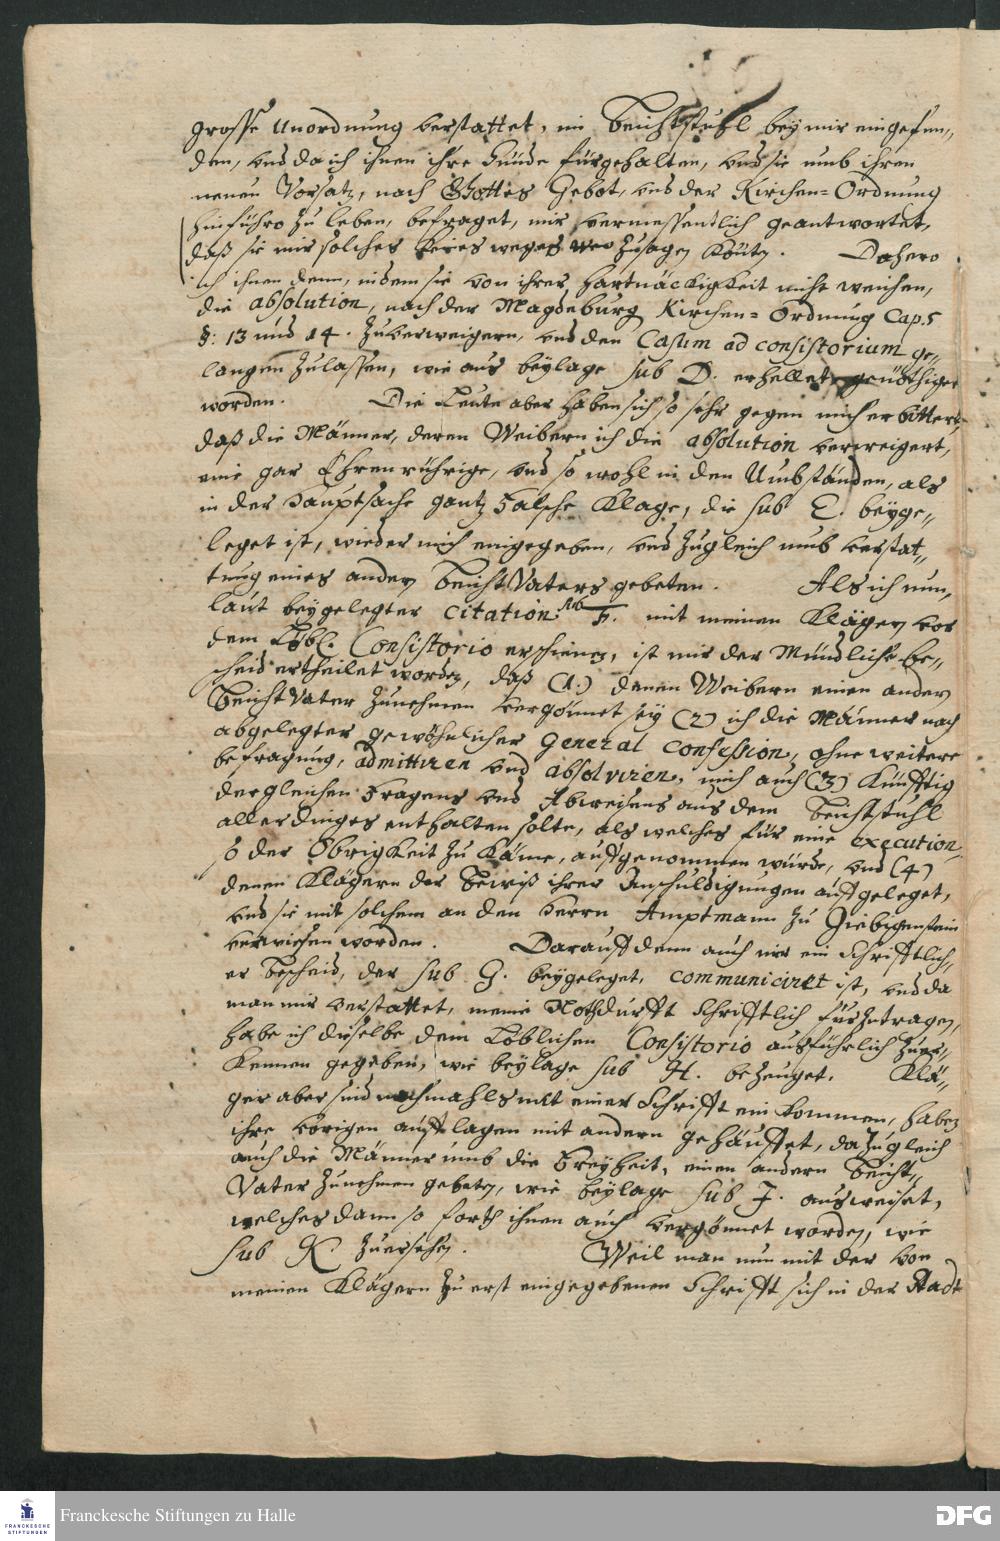 grosse Unordnung verstattet, im Beichtstuhl bey mir eingefun„
den, und da ich ihnen ihre Sünde fürgehalten, und sie umb ihren
neuen Vorsatz, nach Gottes Gebot, und der Kirchen=Ordnung
hinführo zu leben, befraget, mir vermessentlich geantwortet,
daß sie mir solches keines weges zusagen könten. Dahero
ich ihnen denn, indem sie von ihrer Hartnäckigkeit nicht weichen,
die absolution, nach der Magdeburg Kirchen=Ordnung Cap. 5
§. 13 und 14. zu verweigern, und den Casum ad consistorium ge„
langen zulassen, wie aus beylage sub D. erhellet, genöthiget
worden. Die Leute aber haben sich so sehr gegen mich erbittert,
daß die Männer, deren Weibern ich die absolution verweigert,
eine gar Ehrenrührige, und so wohl in den Umbständen, als
in der Hauptsache gantz falsche Klage, die sub E. beyge„
leget ist, wieder mich eingegeben, und zugleich umb verstat„
tung eines andern Beicht Vaters gebeten. Als ich nun,
laut beygelegter citation sub F. mit meinen Klägern vor
dem Löbl. Consistorio erschienen, ist mir der Mündliche be„
scheid ertheilet worden, daß (1.) denen Weibern einen andern
Beicht Vater zunehmen vergönnet sey (2) ich die Männer nach
abgelegter gewöhnlicher general confession, ohne weitere
befragung, admittiren und absolviren, mich auch (3) künfftig
dergleichen Fragens und Abweisens aus dem Beichtstuhl
allerdinges enthalten solte, als welches für eine execution,
so der Obrigkeit zu käme, auffgenommen würde, und (4)
denen Klägern der Beweiß ihrer Anschuldigungen auffgeleget,
und sie mit solchem an den Herrn Amptmann zu Giebigenstein
verwiesen worden. Darauff denn auch mir ein Schrifftlich„
er Bescheid, der sub G. beygeleget, communiciret ist, und da
man mir verstattet, meine Nothdurfft Schrifftlich fürzutragen,
habe ich dieselbe dem Löblichen Consistorio ausführlich zuer„
kennen gegeben, wie beylage sub H. bezeuget. Klä„
ger aber sind nochmahls mit einer Schrifft ein kommen, haben
ihre vorigen aufflagen mit andern gehäuffet, da zugleich
auch die Männer umb die Freyheit, einen andern Beicht„
Vater zunehmen gebeten, wie beylage sub J. ausweiset,
welches dann so forth ihnen auch vergönnet worden, wie
sub K zuersehen. Weil man nun mit der von
meinen Klägern zu erst eingegebenen Schrifft sich in der Stadt
Franckesche Stiftungen zu Halle
FRANCKESCHE
STIFTUNGEN
DFG